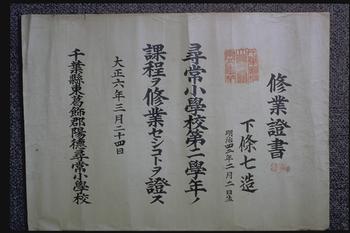 修業證書
下條七造
明治四二年二月二日生
尋常小學校第二學年ノ
課程ヲ修業セシコトヲ證ス
大正六年三月二十四日
千葉縣東葛飾郡陽德尋常小學校